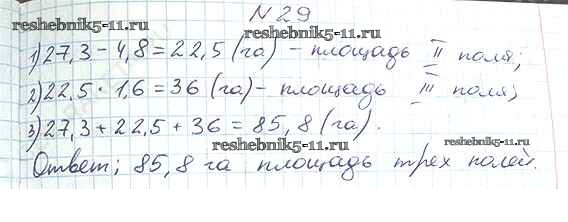 № 29
reshebnik5-11.ru reshebnik5-11.ru
1) 27,3 - 4,8 = 22,5 (га) - площадь II поля;
2) 22,5 · 1,6 = 36 (га) - площадь III поля;
3) 27,3 + 22,5 + 36 = 85,8 (га).
reshebnik5-11.ru reshebnik5-11.ru
Ответ; 85,8 га площадь трех полей.